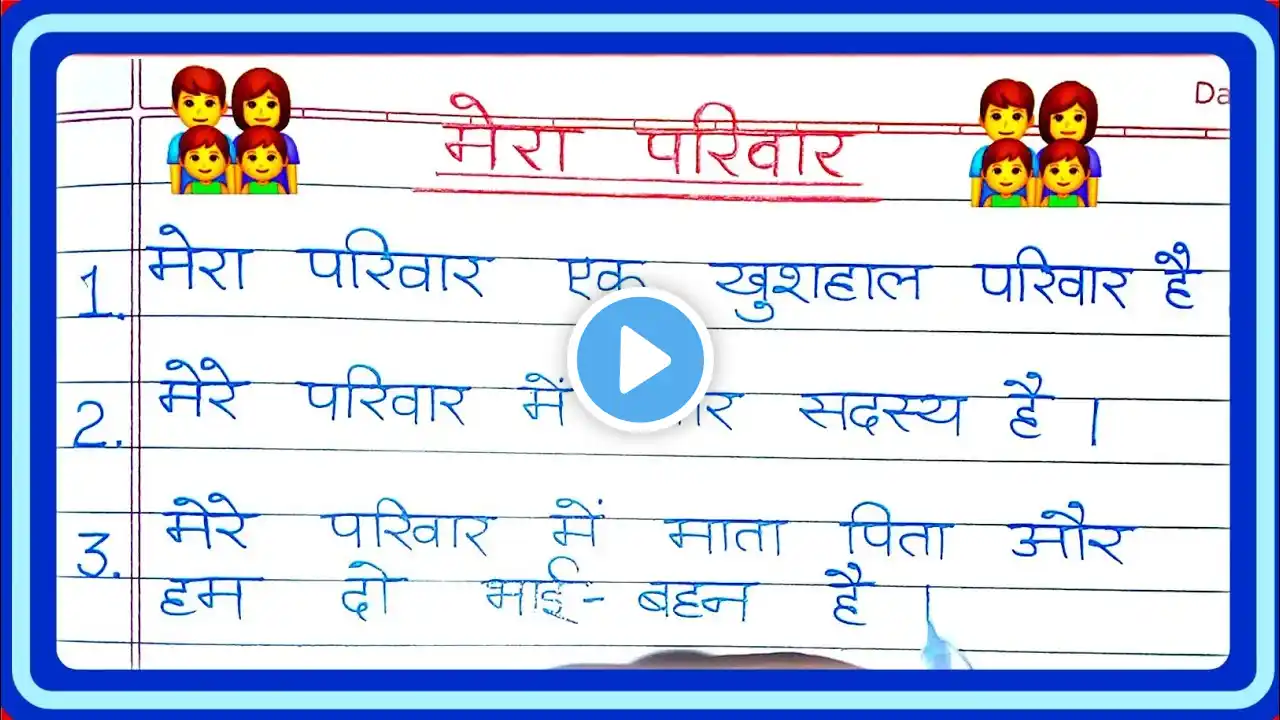 Da
मेरा परिवार
1. मेरा परिवार एक खुशहाल परिवार है
2. मेरे परिवार में सदस्य है ।
3. मेरे परिवार में माता पिता और
हम दो भाई - बहन है ।